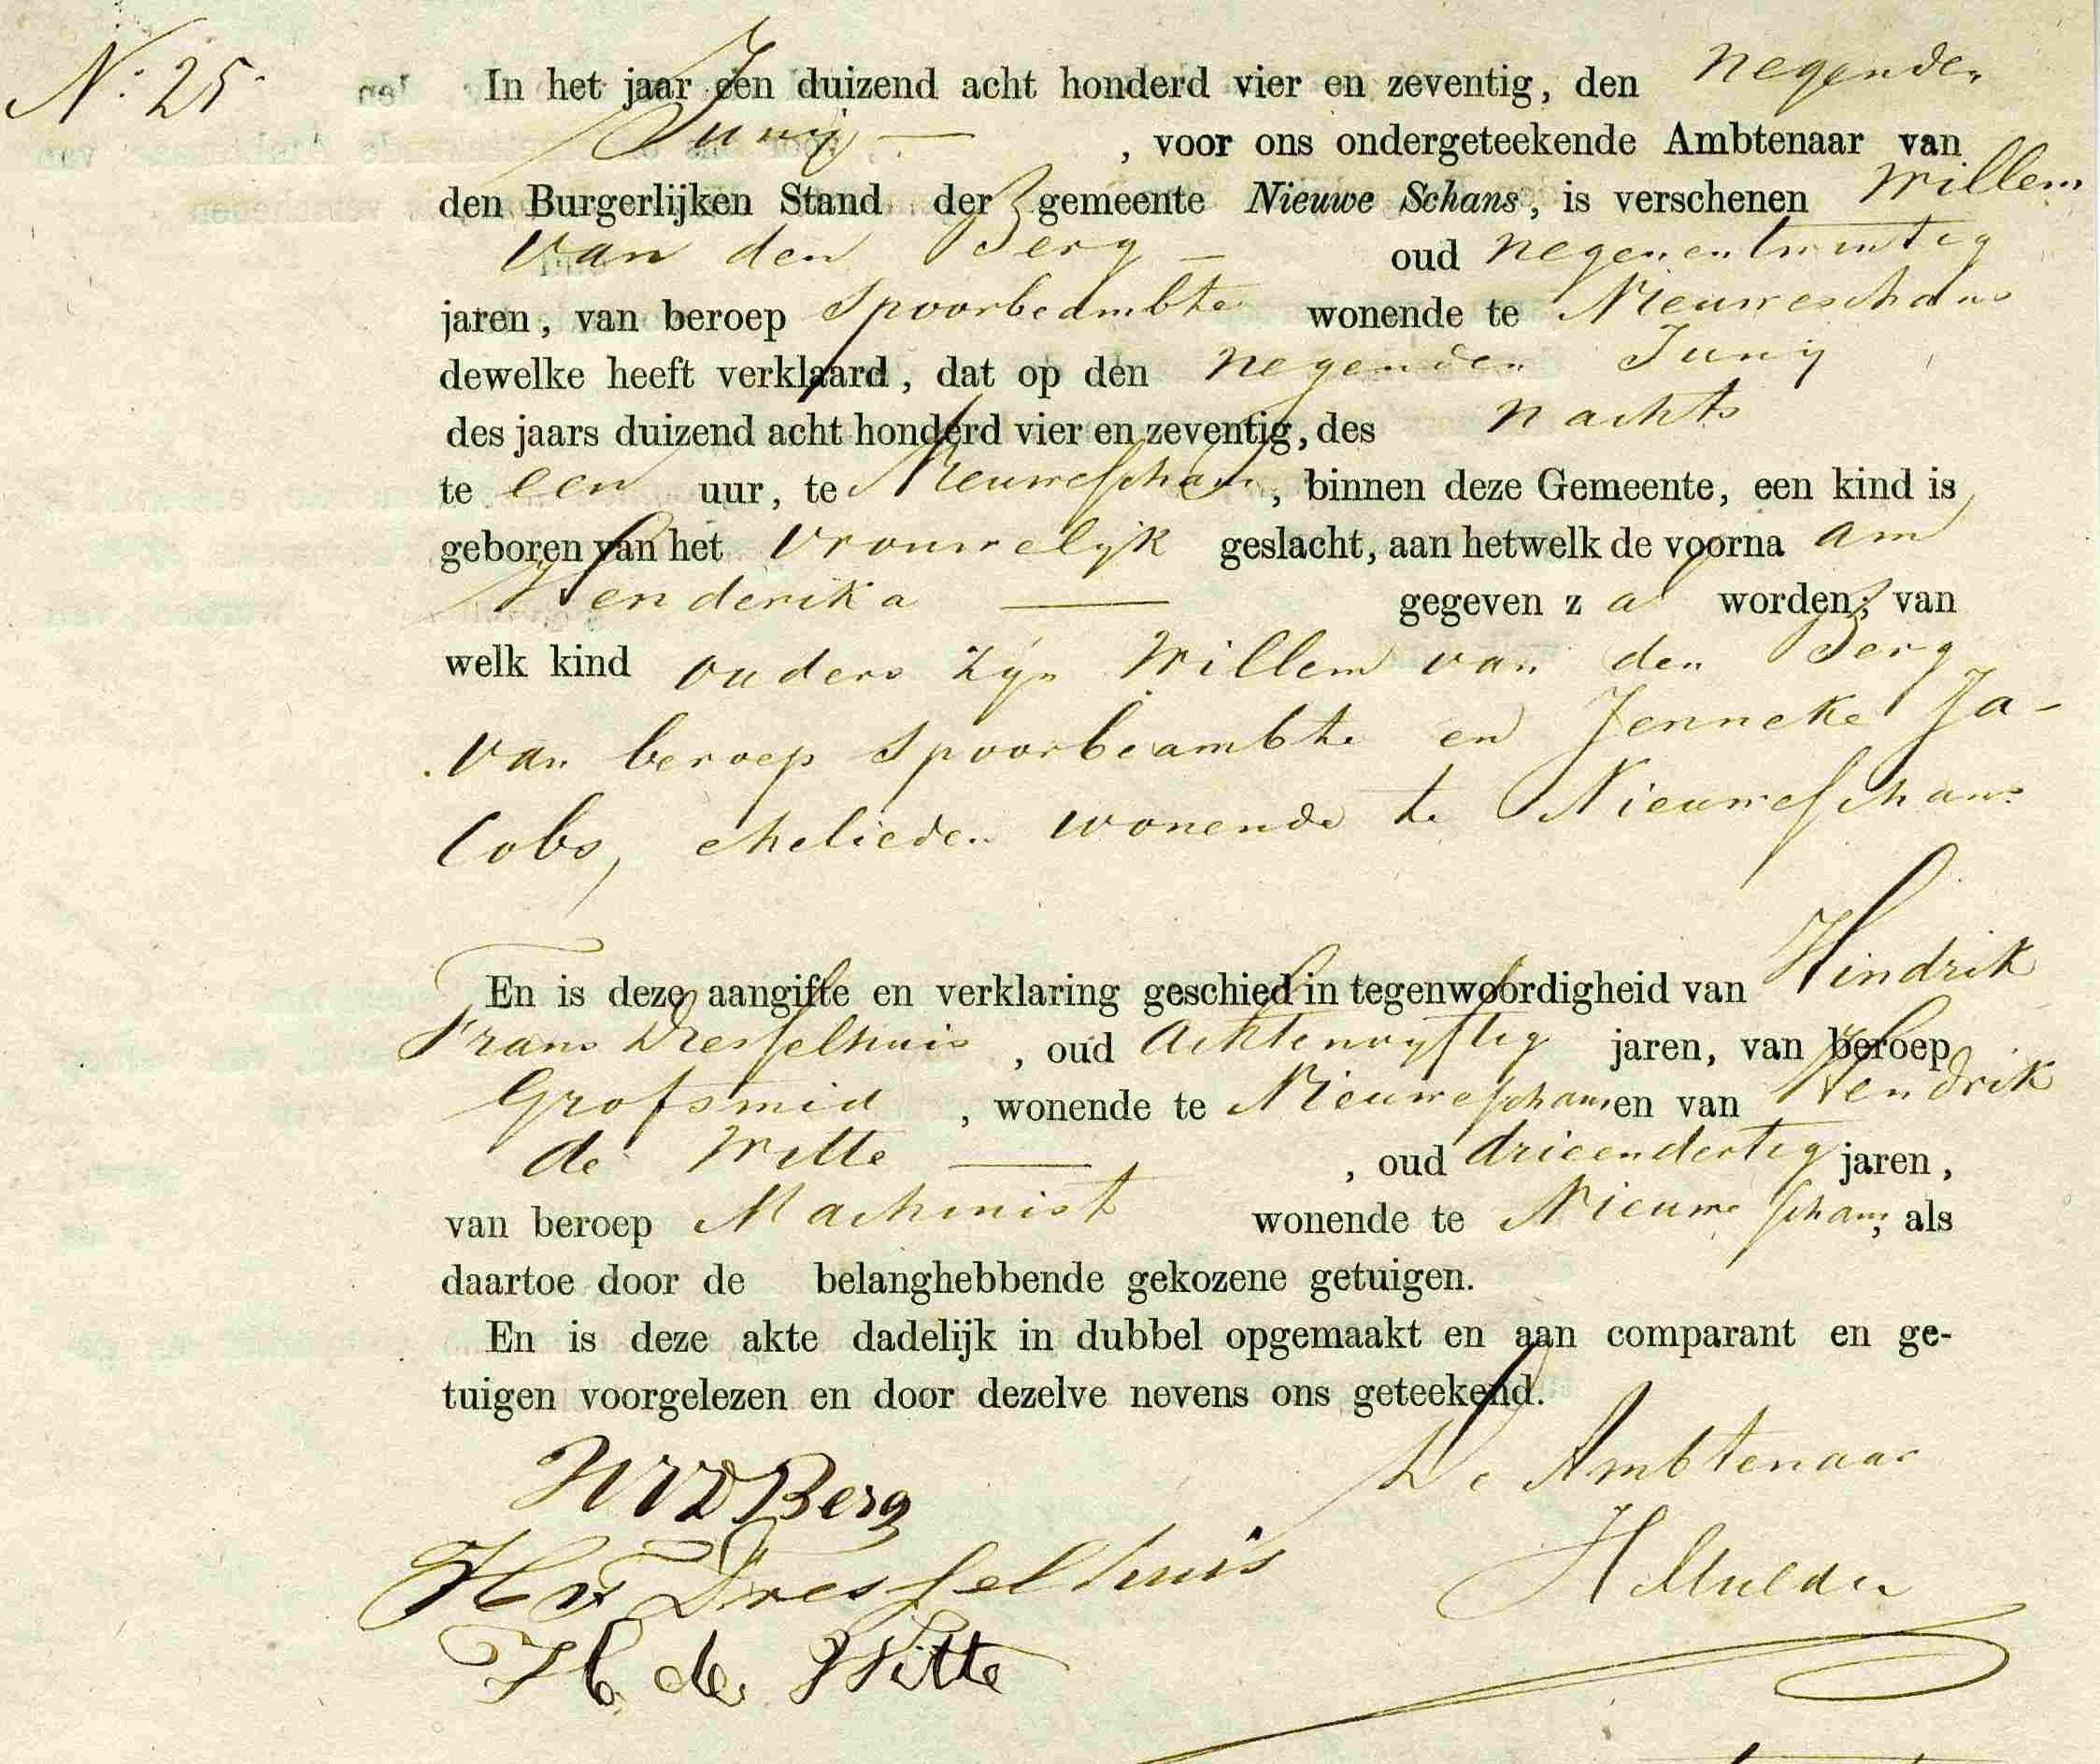 N: 25.
In het jaar een duizend acht honderd vier en zeventig, den negenden
Junij — , voor ons ondergeteekende Ambtenaar van
den Burgerlijken Stand der gemeente Nieuwe Schans, is verschenen Willem
van den Berg — oud negenentwintig
jaren, van beroep Spoorbeambte wonende te Nieuweschans
dewelke heeft verklaard, dat op den negenden Junij
des jaars duizend acht honderd vier en zeventig, des nachts
te een uur, te Nieuweschans, binnen deze Gemeente, een kind is
geboren van het vrouwelijk geslacht, aan hetwelk de voorna am
Henderika — gegeven z al worden; van
welk kind ouders zijn Willem van den Berg
van beroep Spoorbeambte en Jenneke Ja-
cobs, echelieden wonende te Nieuweschans
En is deze aangifte en verklaring geschied in tegenwoordigheid van Hindrik
Frans Dresselhuis, oud Achtenvyftig jaren, van beroep
Grofsmid, wonende te Nieuweschans en van Hendrik
de Witte — , oud drieendertig jaren,
van beroep Machinist wonende te Nieuwe schans, als
daartoe door de belanghebbende gekozene getuigen.
En is deze akte dadelijk in dubbel opgemaakt en aan comparant en ge-
tuigen voorgelezen en door dezelve nevens ons geteekend.
WVDBerg
De Ambtenaar
HF Dresselhuis
H Mulder
H. de Witte